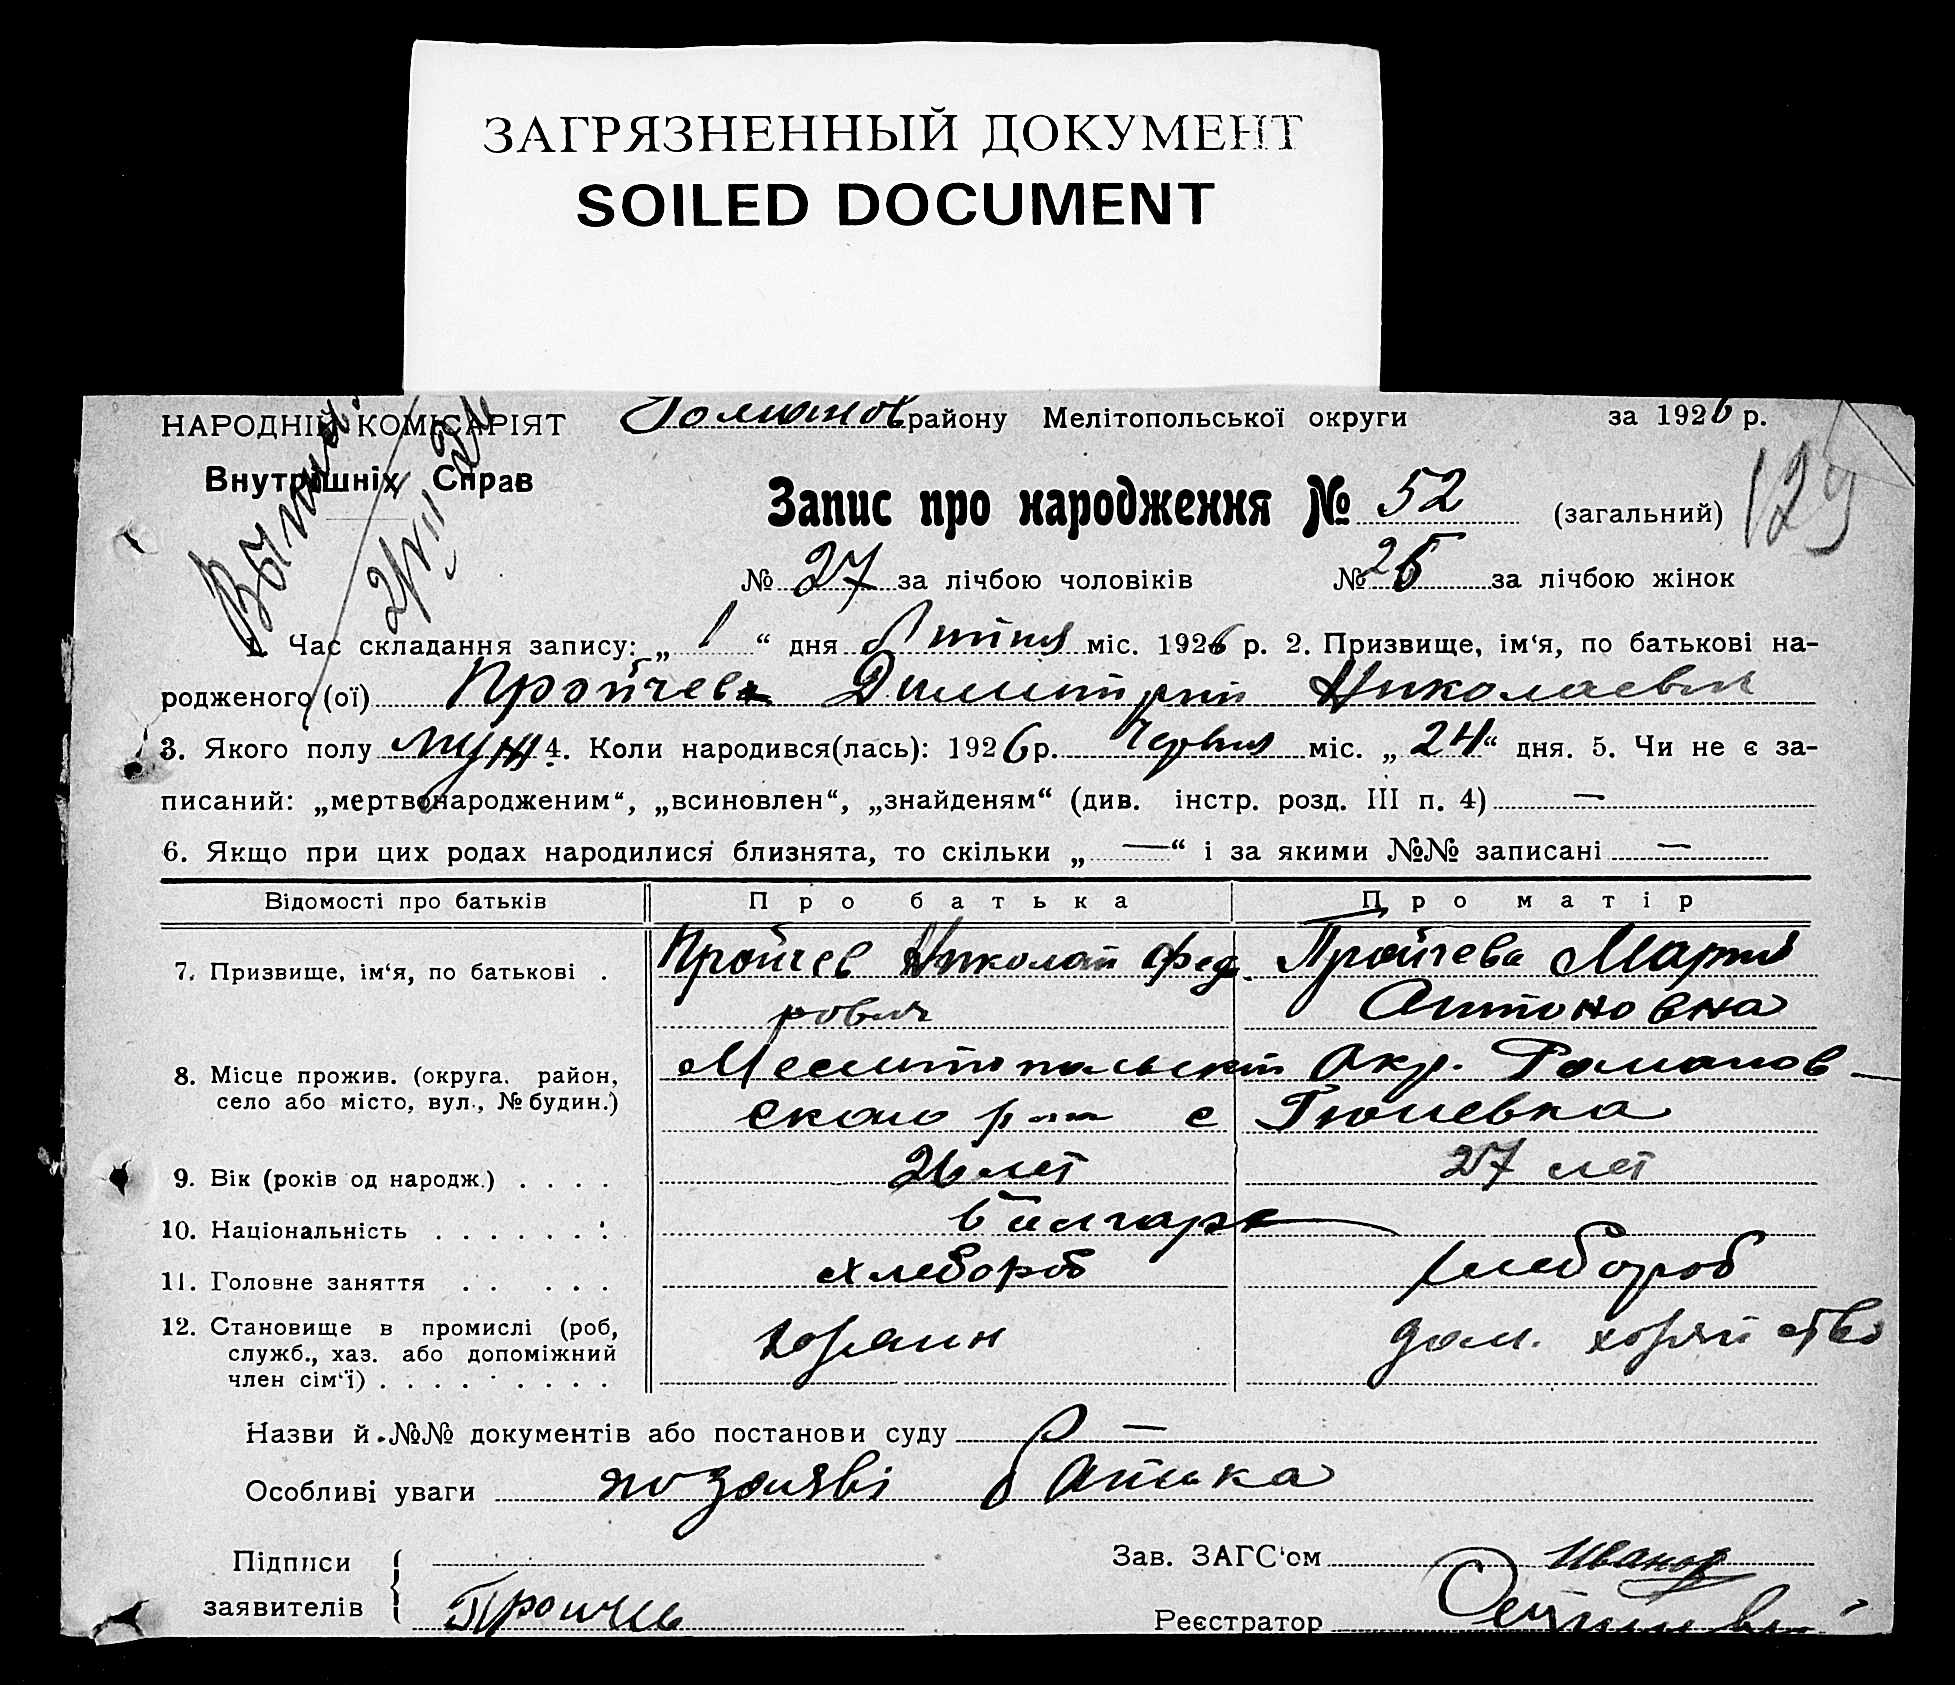 ЗАГРЯЗНЕННЫЙ ДОКУМЕНТ
SOILED DOCUMENT
НАРОДНІЙ КОМІСАРІЯТ
Внутрішніх Справ
району Мелітопольської округи за 1926 р.
129
Запис про народження № 52 (загальний)
№ 27 за лічбою чоловіків № 25 за лічбою жінок
1. Час складання запису: „ 1 “ дня Липня міс. 1926 р. 2. Призвище, ім‘я, по батькові на-
родженого (ої) Пройчев Димитрий Николаевич
3. Якого полу муж 4. Коли народився(лась): 1926 р. Червня міс. „ 24 “ дня. 5. Чи не є за-
писаний: „мертвонародженим“, „всиновлен“, „знайденям“ (див. інстр. розд. III п. 4) —
6. Якщо при цих родах народилися близнята, то скільки „ — “ і за якими №№ записані —
Відомості про батьків Про батька Про матір
7. Призвище, ім‘я, по батькові . Пройчев Николай Фед Пройчева Мария
рович Антоновна
8. Місце прожив. (округа, район, Мелитопольский Окр. Романов
село або місто, вул., № будин.) ского с Гюневка
9. Вік (років од народж.) . . . . 26 лет 27 лет
10. Національність . . . . . . . болгаре
11. Головне заняття . . . . . хлебороб хлебороб
12. Становище в промислі (роб,
служб., хаз. або допоміжний хозяин дом. хозяйство
член сім‘ї) . . . . . . . . .
Назви й №№ документів або постанови суду —
Особливі уваги по заяві батька
Підписи Зав. ЗАГС‘ом Иванов
заявителів Пройчев Реєстратор